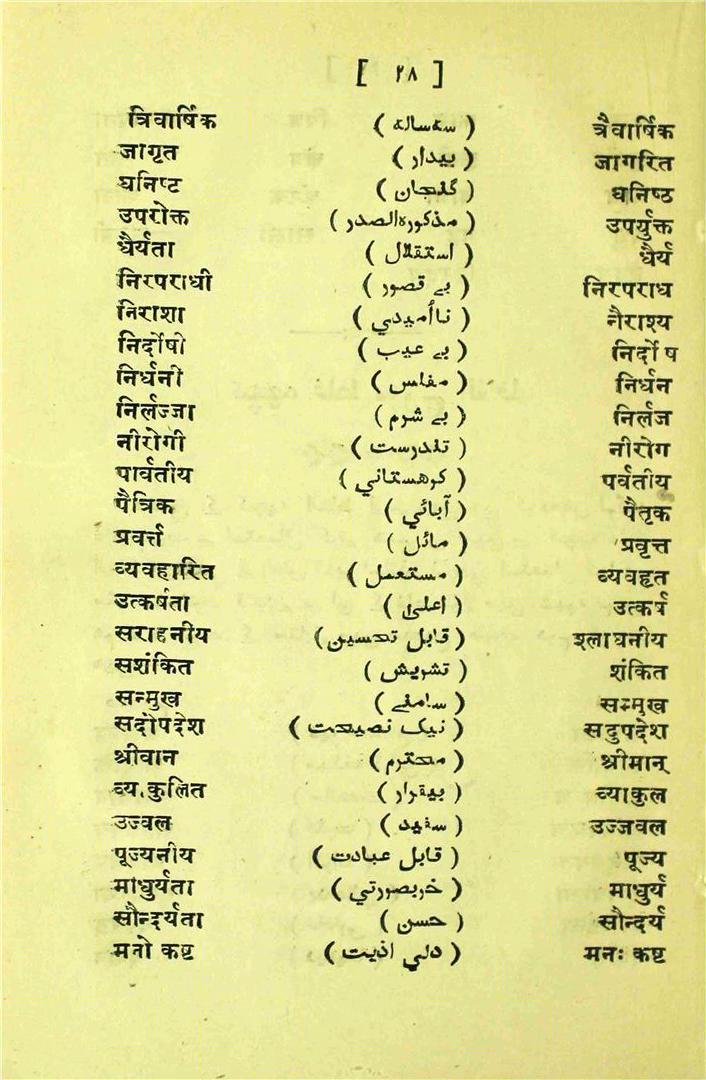 [ ٢٨ ]
त्रिवार्षिक ( سه ساله ) त्रैवार्षिक
जागृत ( بیدار ) जागरित
घनिष्ट ( گنجان ) घनिष्ठ
उपरोक्त ( مذکورہ الصدر ) उपर्युक्त
धैर्यता ( استقلال ) धैर्य
निरपराधी ( بے قصور ) निरपराध
निराशा ( ناأمیدي ) नैराश्य
निर्दोषी ( بے عیب ) निर्दोष
निर्धनी ( مفلس ) निर्धन
निर्लज्जा ( بے شرم ) निर्लज
नीरोगी ( تندرست ) नीरोग
पार्वतीय ( کوهستاني ) पर्वतीय
पैत्रिक ( آبائي ) पैतृक
प्रवर्त्त ( مائل ) प्रवृत्त
व्यवहारित ( مستعمل ) व्यवहृत
उत्कर्षता ( اعلیٰ ) उत्कर्ष
सराहनीय ( قابل تحسین ) श्लाघनीय
सशंकित ( تشریش ) शंकित
सन्मुख ( سامنے ) सम्मुख
सदोपदेश ( نیک نصیحت ) सदुपदेश
श्रीवान ( محترم ) श्रीमान्
व्य.कुलित ( بیقرار ) व्याकुल
उज्वल ( سفید ) उज्जवल
पूज्यनीय ( قابل عبادت ) पूज्य
माधुर्यता ( خربصورتي ) माधुर्य
सौन्दर्यता ( حسن ) सौन्दर्य
मनो कष्ट ( دلي اذیت ) मनः कष्ट